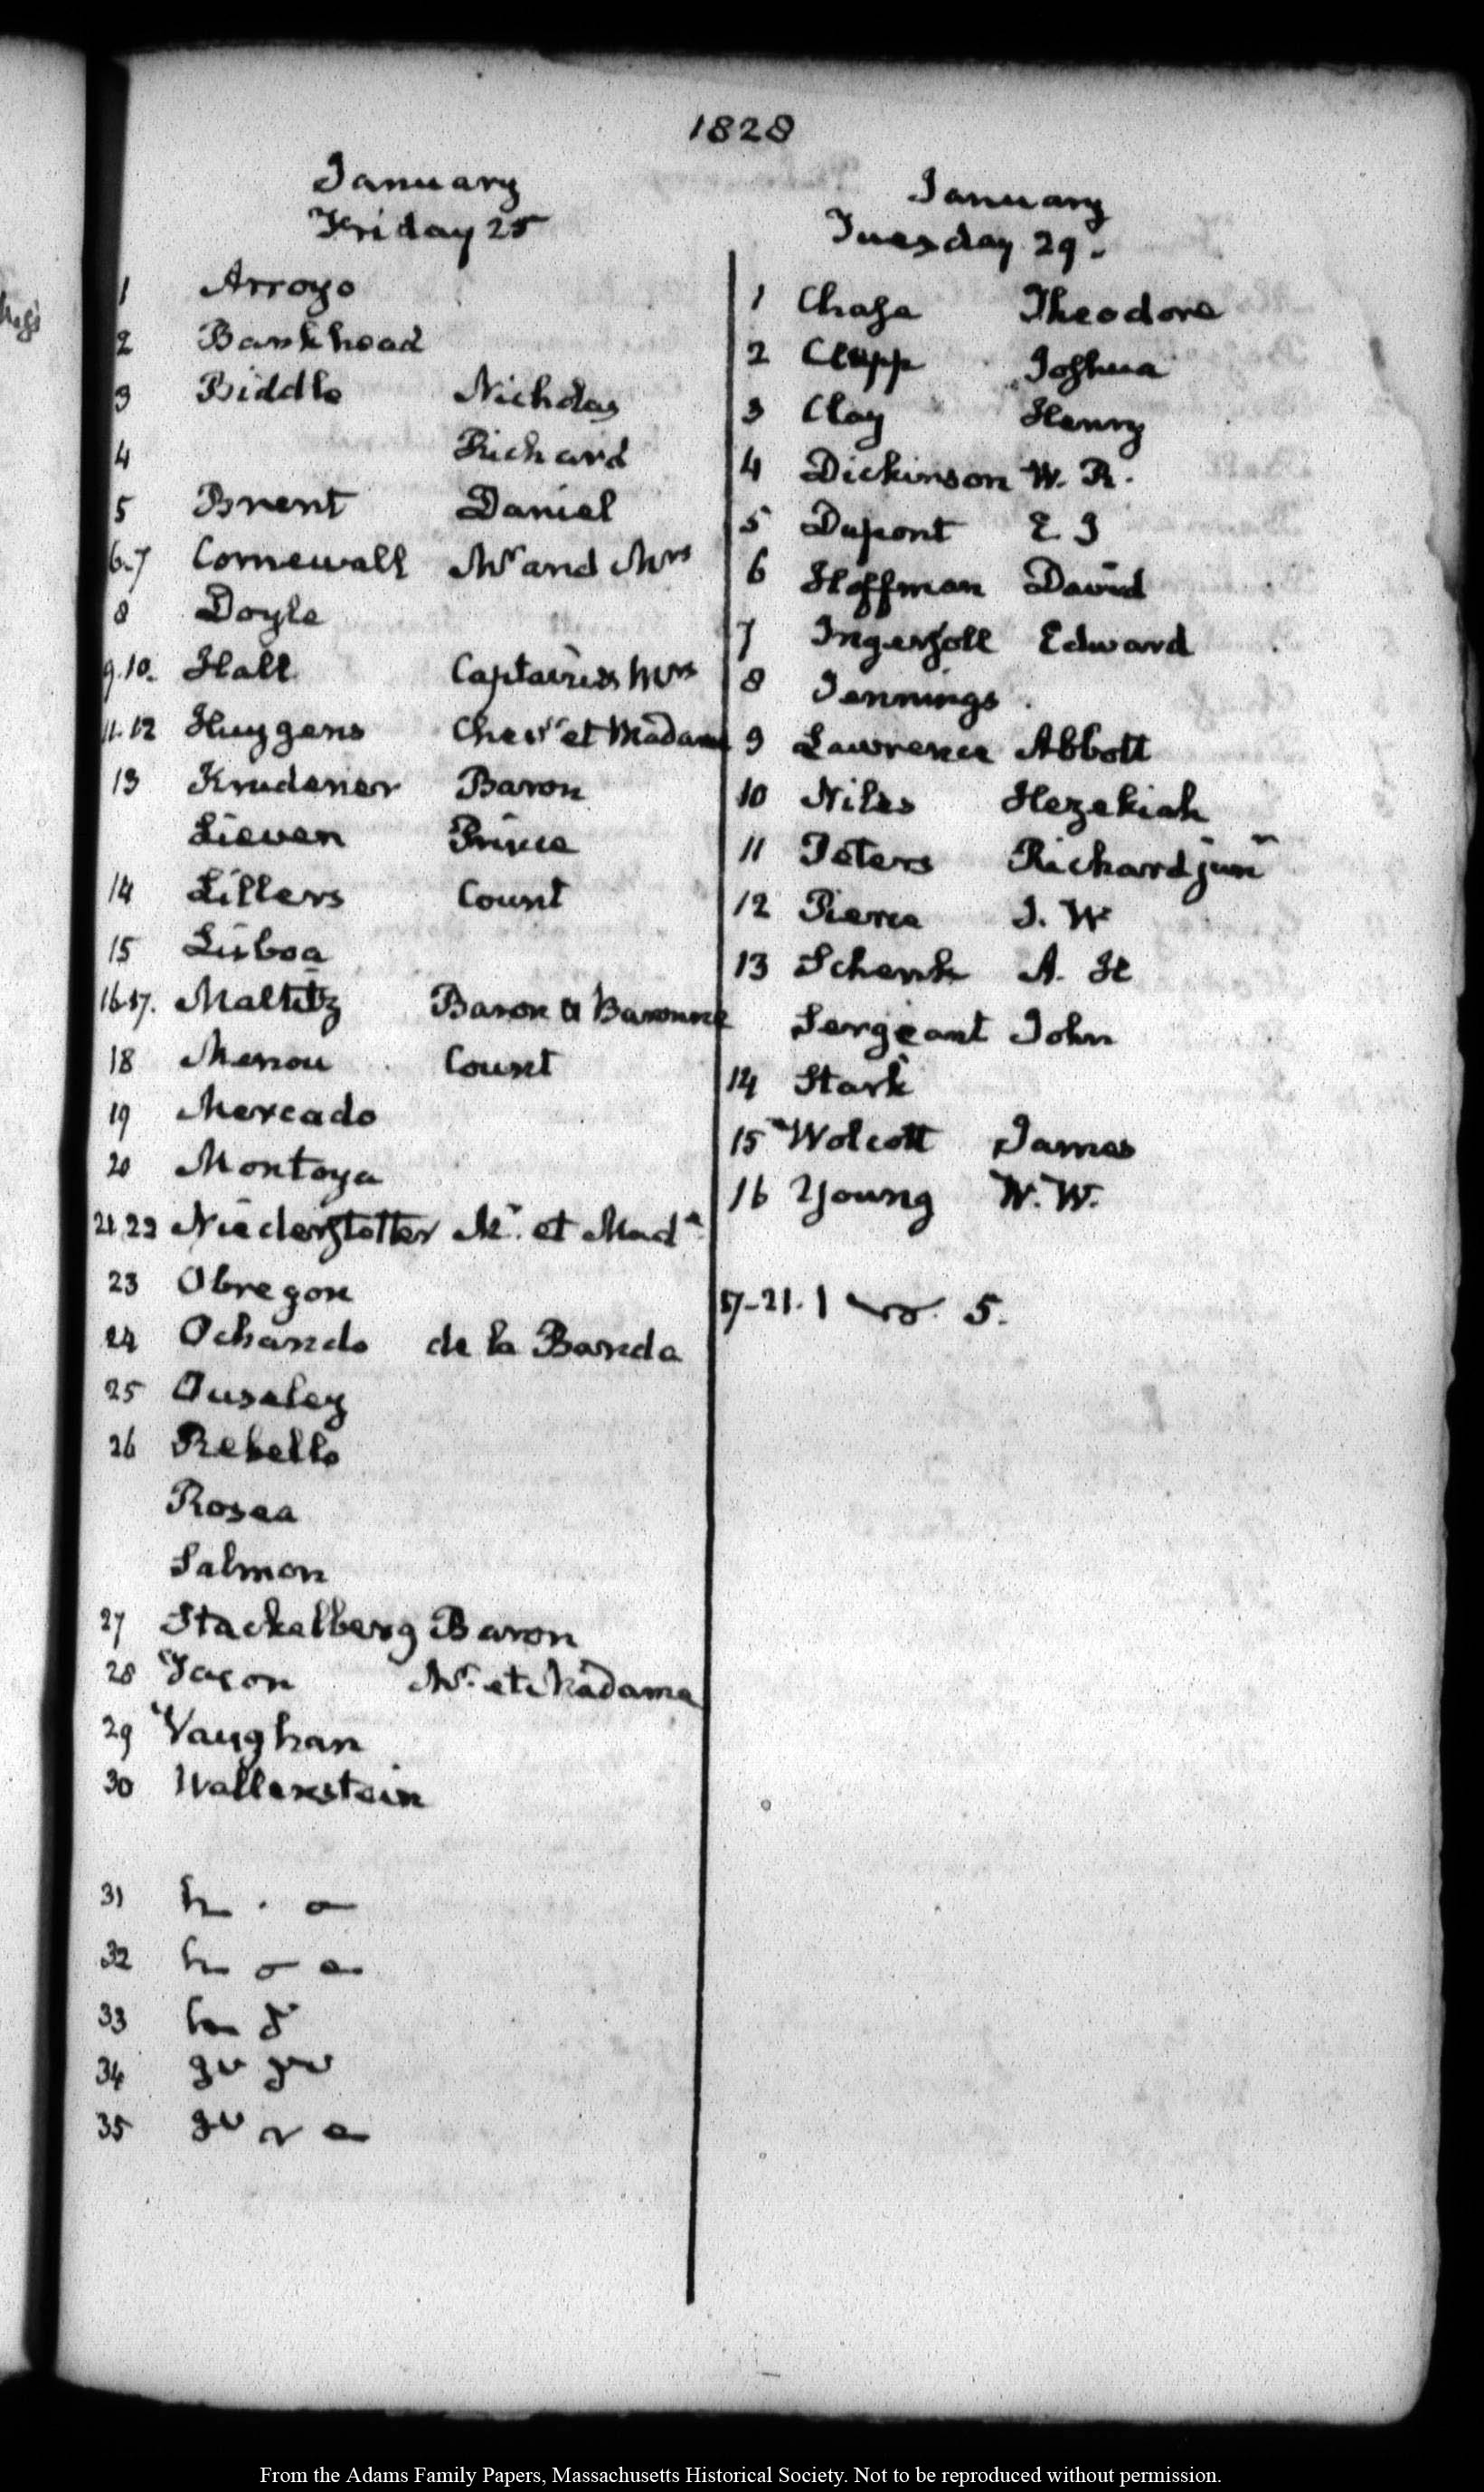 1828
January
Friday 25
1 Arroyo
2 Bankhead
3 Biddle Nicholas
4 Richard
5 Brent Daniel
6-7 Cornewall Mr and Mrs
8 Doyle
9.10. Hall Captain & Mrs
11.12 Huygens Chevr et Madame
13 Krudener Baron
Lieven Prince
14 Lillers Count
15 Lisboa
16-17. Maltitz Baron & Baronne
18 Menou Count
19 Mercado
20 Montoya
21.22 Niederstetter Mr. et Made
23 Obregon
24 Ochando de la Banda
25 Ouseley
26 Rebello
Rosea
Salmon
27 Stackelberg Baron
28 Tacon Mr. et Madame
29 Vaughan
30 Wallenstein
31
32
33
34
35
January
Tuesday 29.
1 Chase Theodore
2 Clapp Joshua
3 Clay Henry
4 Dickinson W. R.
5 Dupont E I
6 Hoffman David
7 Ingersoll Edward
8 Jennings.
9 Lawrence Abbott
10 Niles Hezekiah
11 Peters Richard junr
12 Pierce I. W
13 Schenk A. H
Sergeant John
14 Stark
15 Wolcott James
16 Young W. W.
17-21. 5.
From the Adams Family Papers, Massachusetts Historical Society. Not to be reproduced without permission.